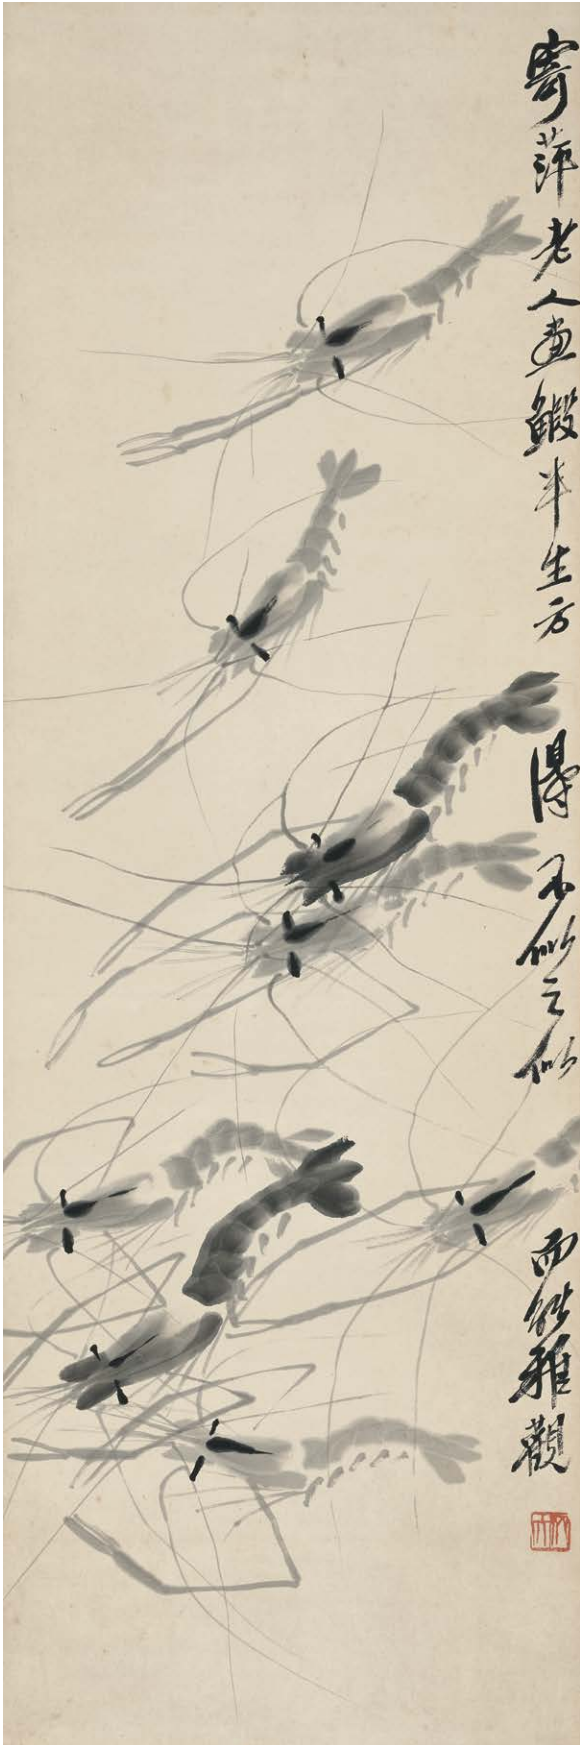 寄萍老人畫鰕半生方得不似之似而能雅觀